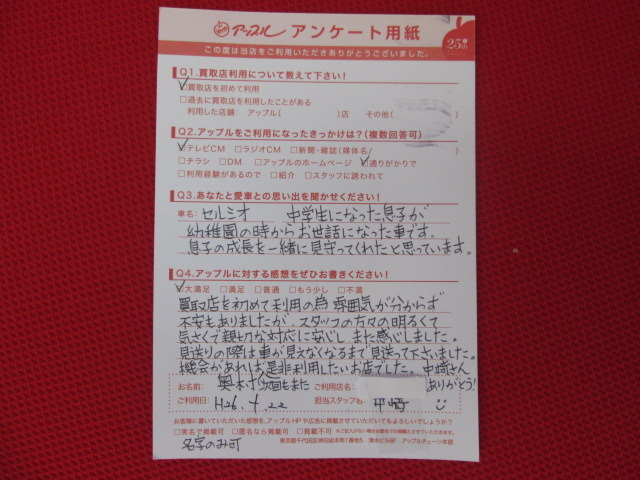 アップル アンケート用紙
25th
この度は当店をご利用いただきありがとうございました。
Q1.買取店利用について教えて下さい!
☑買取店を初めて利用
□過去に買取店を利用したことがある
利用した店舗: アップル( )店 その他( )
Q2.アップルをご利用になったきっかけは?(複数回答可)
☑テレビCM □ラジオCM □新聞・雑誌(媒体名/ )
□チラシ □DM □アップルのホームページ ☑通りがかりで
□利用経験があるので □紹介 □スタッフに誘われて
Q3.あなたと愛車との思い出を聞かせください!
車名: セルシオ 中学生になった息子が
幼稚園の時からお世話になった車です。
息子の成長を一緒に見守ってくれたと思っています。
Q4.アップルに対する感想をぜひお書きください!
☑大満足 □満足 □普通 □もう少し □不満
買取店を初めて利用の為 雰囲気が分からず
不安もありましたが、スタッフの方々の明るくて
気さくで親切な対応に安心し また感じしました。
見送りの際は車が見えなくなるまで見送って下さいました。
機会があれば是非利用したいお店でした。中崎さん
ありがとう!
お名前: 奥本 次回もまた ご利用店名:
ご利用日: H26.4.22 担当スタッフ名: 中崎
お客様に書いていただいた感想を、アップルHPや広告に掲載させていただいてもよろしいでしょうか?
□実名で掲載可 □匿名なら掲載可 □掲載不可 ※ご記入がない際は匿名での掲載とさせていただきます。
名字のみ可
東京都千代田区神田岩本町1番地5 清水ビル6F アップルチェーン本部